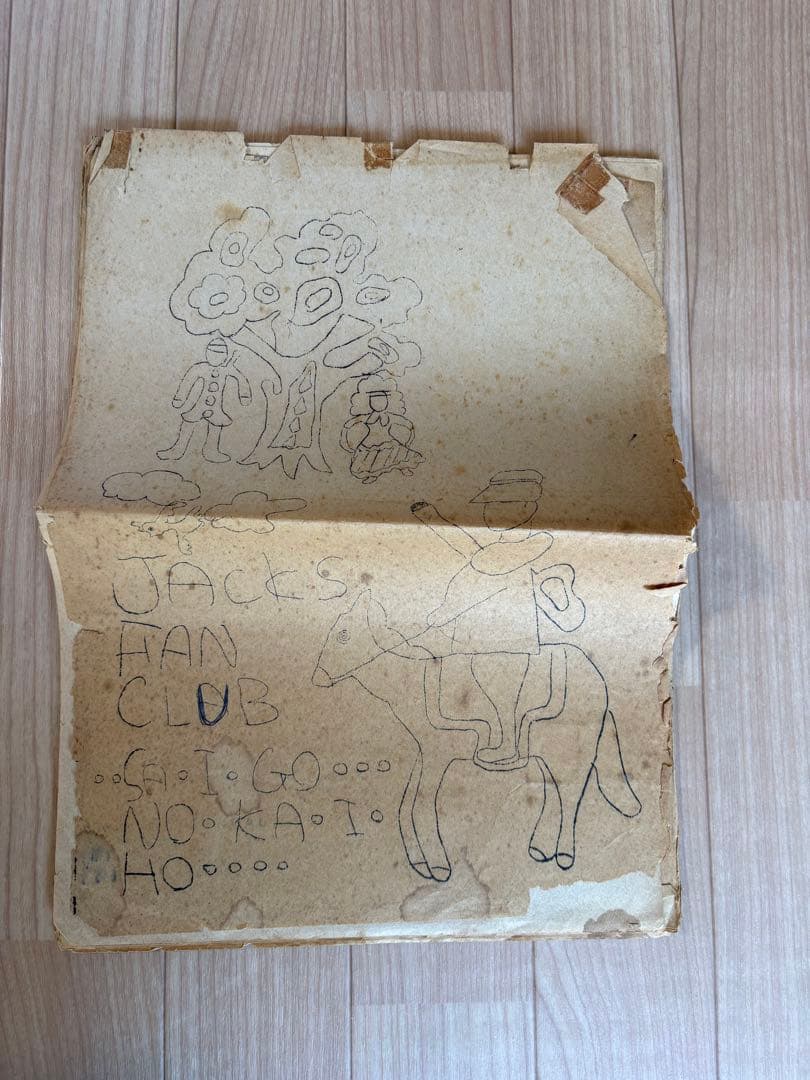 JACKS
FAN
CLUB
∘∘SA∘I∘GO∘∘∘
NO∘KA∘I∘
HO∘∘∘∘